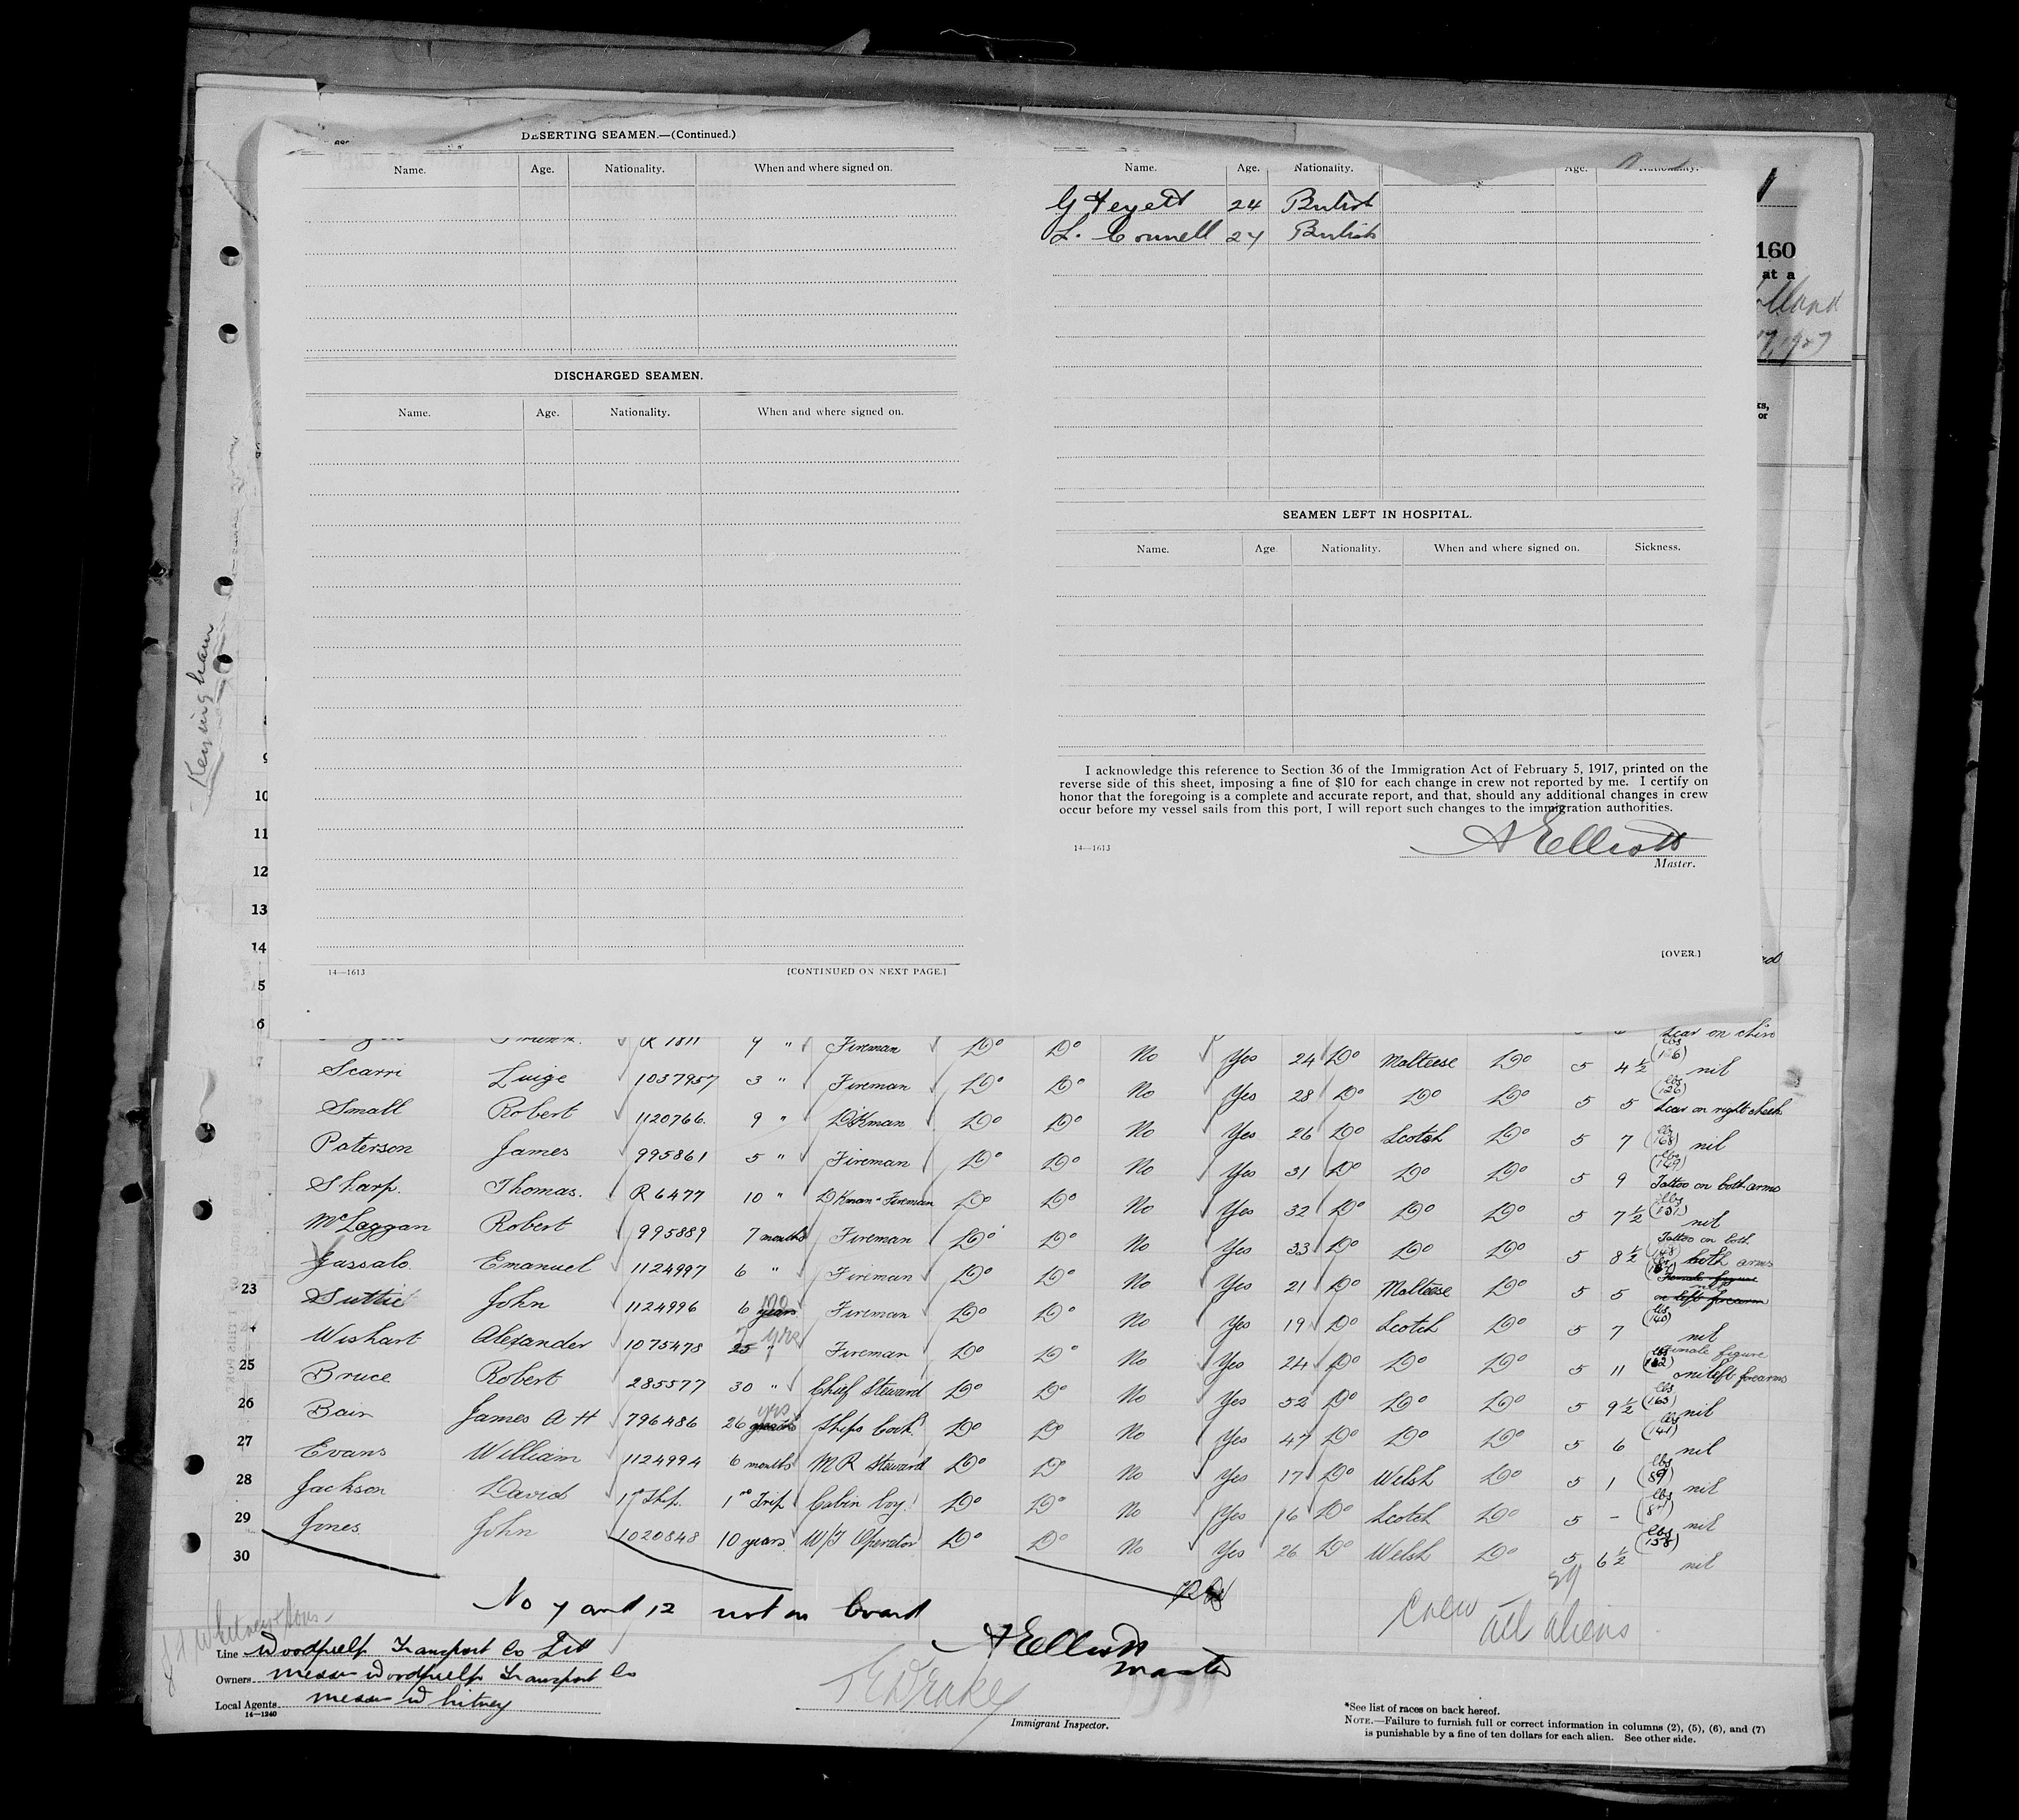 DESERTING SEAMEN.—(Continued.)
Name. Age. Nationality. When and where signed on.
DISCHARGED SEAMEN.
Name. Age. Nationality. When and where signed on.
14—1613 [CONTINUED ON NEXT PAGE.]
Name. Age. Nationality. Age. Nationality.
G 24 British
L. Connell 24 British
SEAMEN LEFT IN HOSPITAL.
Name. Age Nationality. When and where signed on. Sickness.
I acknowledge this reference to Section 36 of the Immigration Act of February 5, 1917, printed on the
reverse side of this sheet, imposing a fine of $10 for each change in crew not reported by me. I certify on
honor that the foregoing is a complete and accurate report, and that, should any additional changes in crew
occur before my vessel sails from this port, I will report such changes to the immigration authorities.
A Elliott
14—1613 Master.
[OVER.]
160
at a
17, 1927
or
Kensingham
9
10
11
12
13
14
15
16
R 1811 9 " Fireman Do Do No Yes 24 Do Malteese Do 5 4½ nil
Scar on chin
17 Scarri Luige 1037957 3 " Fireman Do Do No Yes 28 Do Do Do 5 5 (126) lbs Scar on right cheek
Small Robert 1120766. 9 " DKman Do Do No Yes 26 Do Scotch Do 5 7 (168) lbs nil
Paterson James 995861 5 " Fireman Do Do No Yes 31 Do Do Do 5 9 (149) lbs Tattoo on both arms
Sharp. Thomas. R 6477 10 " DKman & Fireman Do Do No Yes 32 Do Do Do 5 7½ lbs nil
McLaggan Robert 995889 7 months Fireman Do Do No Yes 33 Do Do Do 5 8½ Tattoo on both both arms
Jassalo Emanuel 1124997 6 " Fireman Do Do No Yes 21 Do Malteese Do 5 5 Female figure on left forearm nil
23 Suttie John 1124996 6 years mo Fireman Do Do No Yes 19 Do Scotch Do 5 7 (140) lbs nil
Wishart Alexander 1075478 25 " 7 yrs Fireman Do Do No Yes 24 Do Do Do 5 11 lbs female figure on left forearms
25 Bruce Robert 285577 30 " Chief Steward Do Do No Yes 52 Do Do Do 5 9½ (163) lbs nil
26 Bain James A H 796486 26 yrs Ships Cook Do Do No Yes 47 Do Do Do 5 6 (141) lbs nil
27 Evans William 1124994 6 months M R Steward Do Do No Yes 17 Do Welsh Do 5 1 (89) lbs nil
28 Jackson David 1st Ship. 1st Trip Cabin boy. Do Do No Yes 16 Do Scotch Do 5 - lbs nil
29 Jones John 1020848 10 years W/T Operator Do Do No Yes 26 Do Welsh Do 5 6½ (158) lbs nil
30
No 7 and 12 not on board
A Elliott
Master
29
Crew all aliens
J H Whitney & Sons
Line Woodpulp Transport Co Ltd
Owners Messrs Woodpulp Transport Co
Local Agents Messrs Whitney
14—1240
T E Drakey
Immigrant Inspector.
*See list of races on back hereof.
NOTE.—Failure to furnish full or correct information in columns (2), (5), (6), and (7)
is punishable by a fine of ten dollars for each alien. See other side.